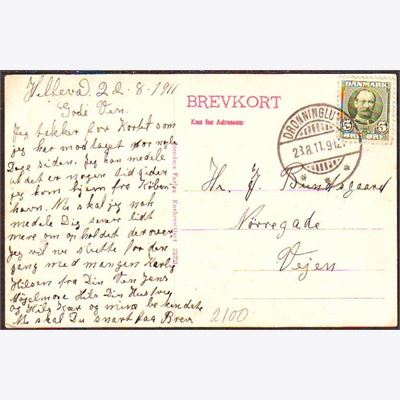 Hillevad. 22-8-1911
Gode Ven.
Jeg takker for Kortet som
jeg har modtaget for nyle
Dage siden. Jeg kan medele
at det er nogen tid siden
jeg kom hjem fra Köben
havn. Nu skal jeg nok
medele Dig senere lidt
mere om opholdet derover
Jeg vil nu slutte for den
gang med mangen Kærlig
Hilsen fra Din Ven Jens
Mijelmose Hils Din Hustru
og Hils Kær og mine bekendte
Nu skal Du snart faa Brev
BREVKORT
Kun for Adressen
DRONNINGLU
23.8.11.9
DANMARK
5 ØRE 5
Hr. J. Bundsgaard
Nörregade
Vejen
2100